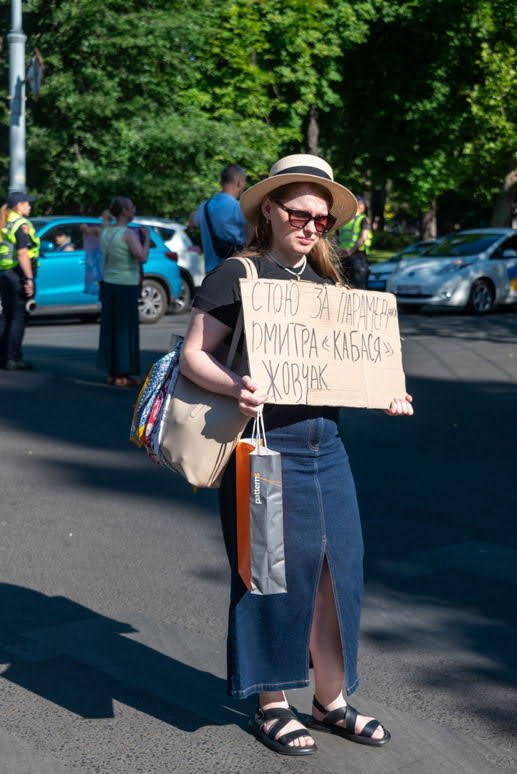 СТОЮ ЗА ПАРАМЕДИ
ДМИТРА «КАБАСЯ»
ЖОВЧАК
patterns